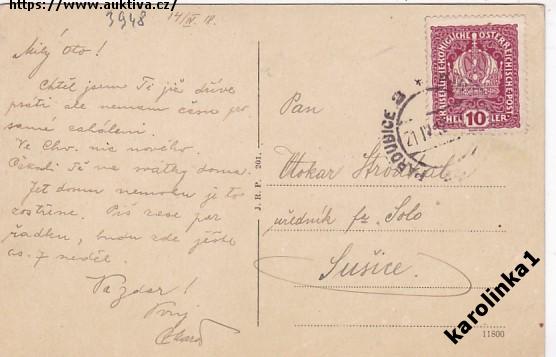 https://www.auktiva.cz/
3948
14/IV. 18.
Milý Oto!
Chtěl jsem Ti již dříve
psáti ale nemám času pro
samé zahálení.
Ve Chv. nic nového.
Čekali Tě ve svátky doma.
Jet domů nemohu je to
zostřené. Piš zase pár
řádků, budu zde ještě
as. 7 neděl.
Nazdar!
Tvůj
J. R. P. 201.
KAISERLICHE KÖNIGLICHE ÖSTERREICHISCHE POST
HELLER 10
PARDUBICE 2
21 IV
Pan
Otokar
úředník fy. Solo
Sušice.
11800
karolinka1